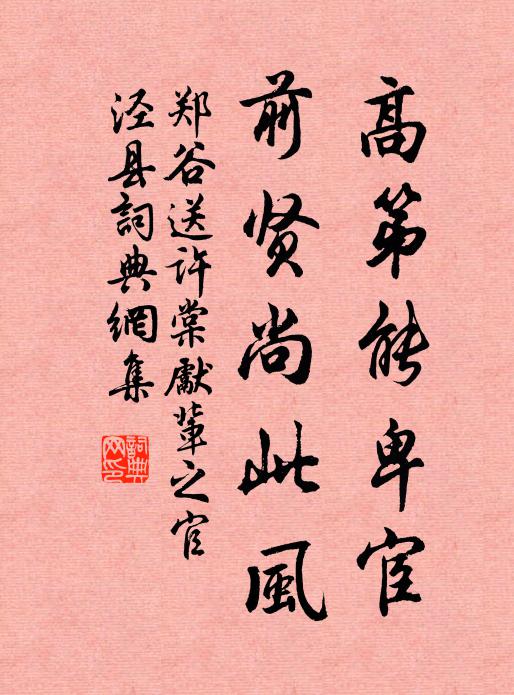 高第能卑宦
前贤尚此風
郑谷送许棠獻辈之官
泾县詞典網集
詞典
网印